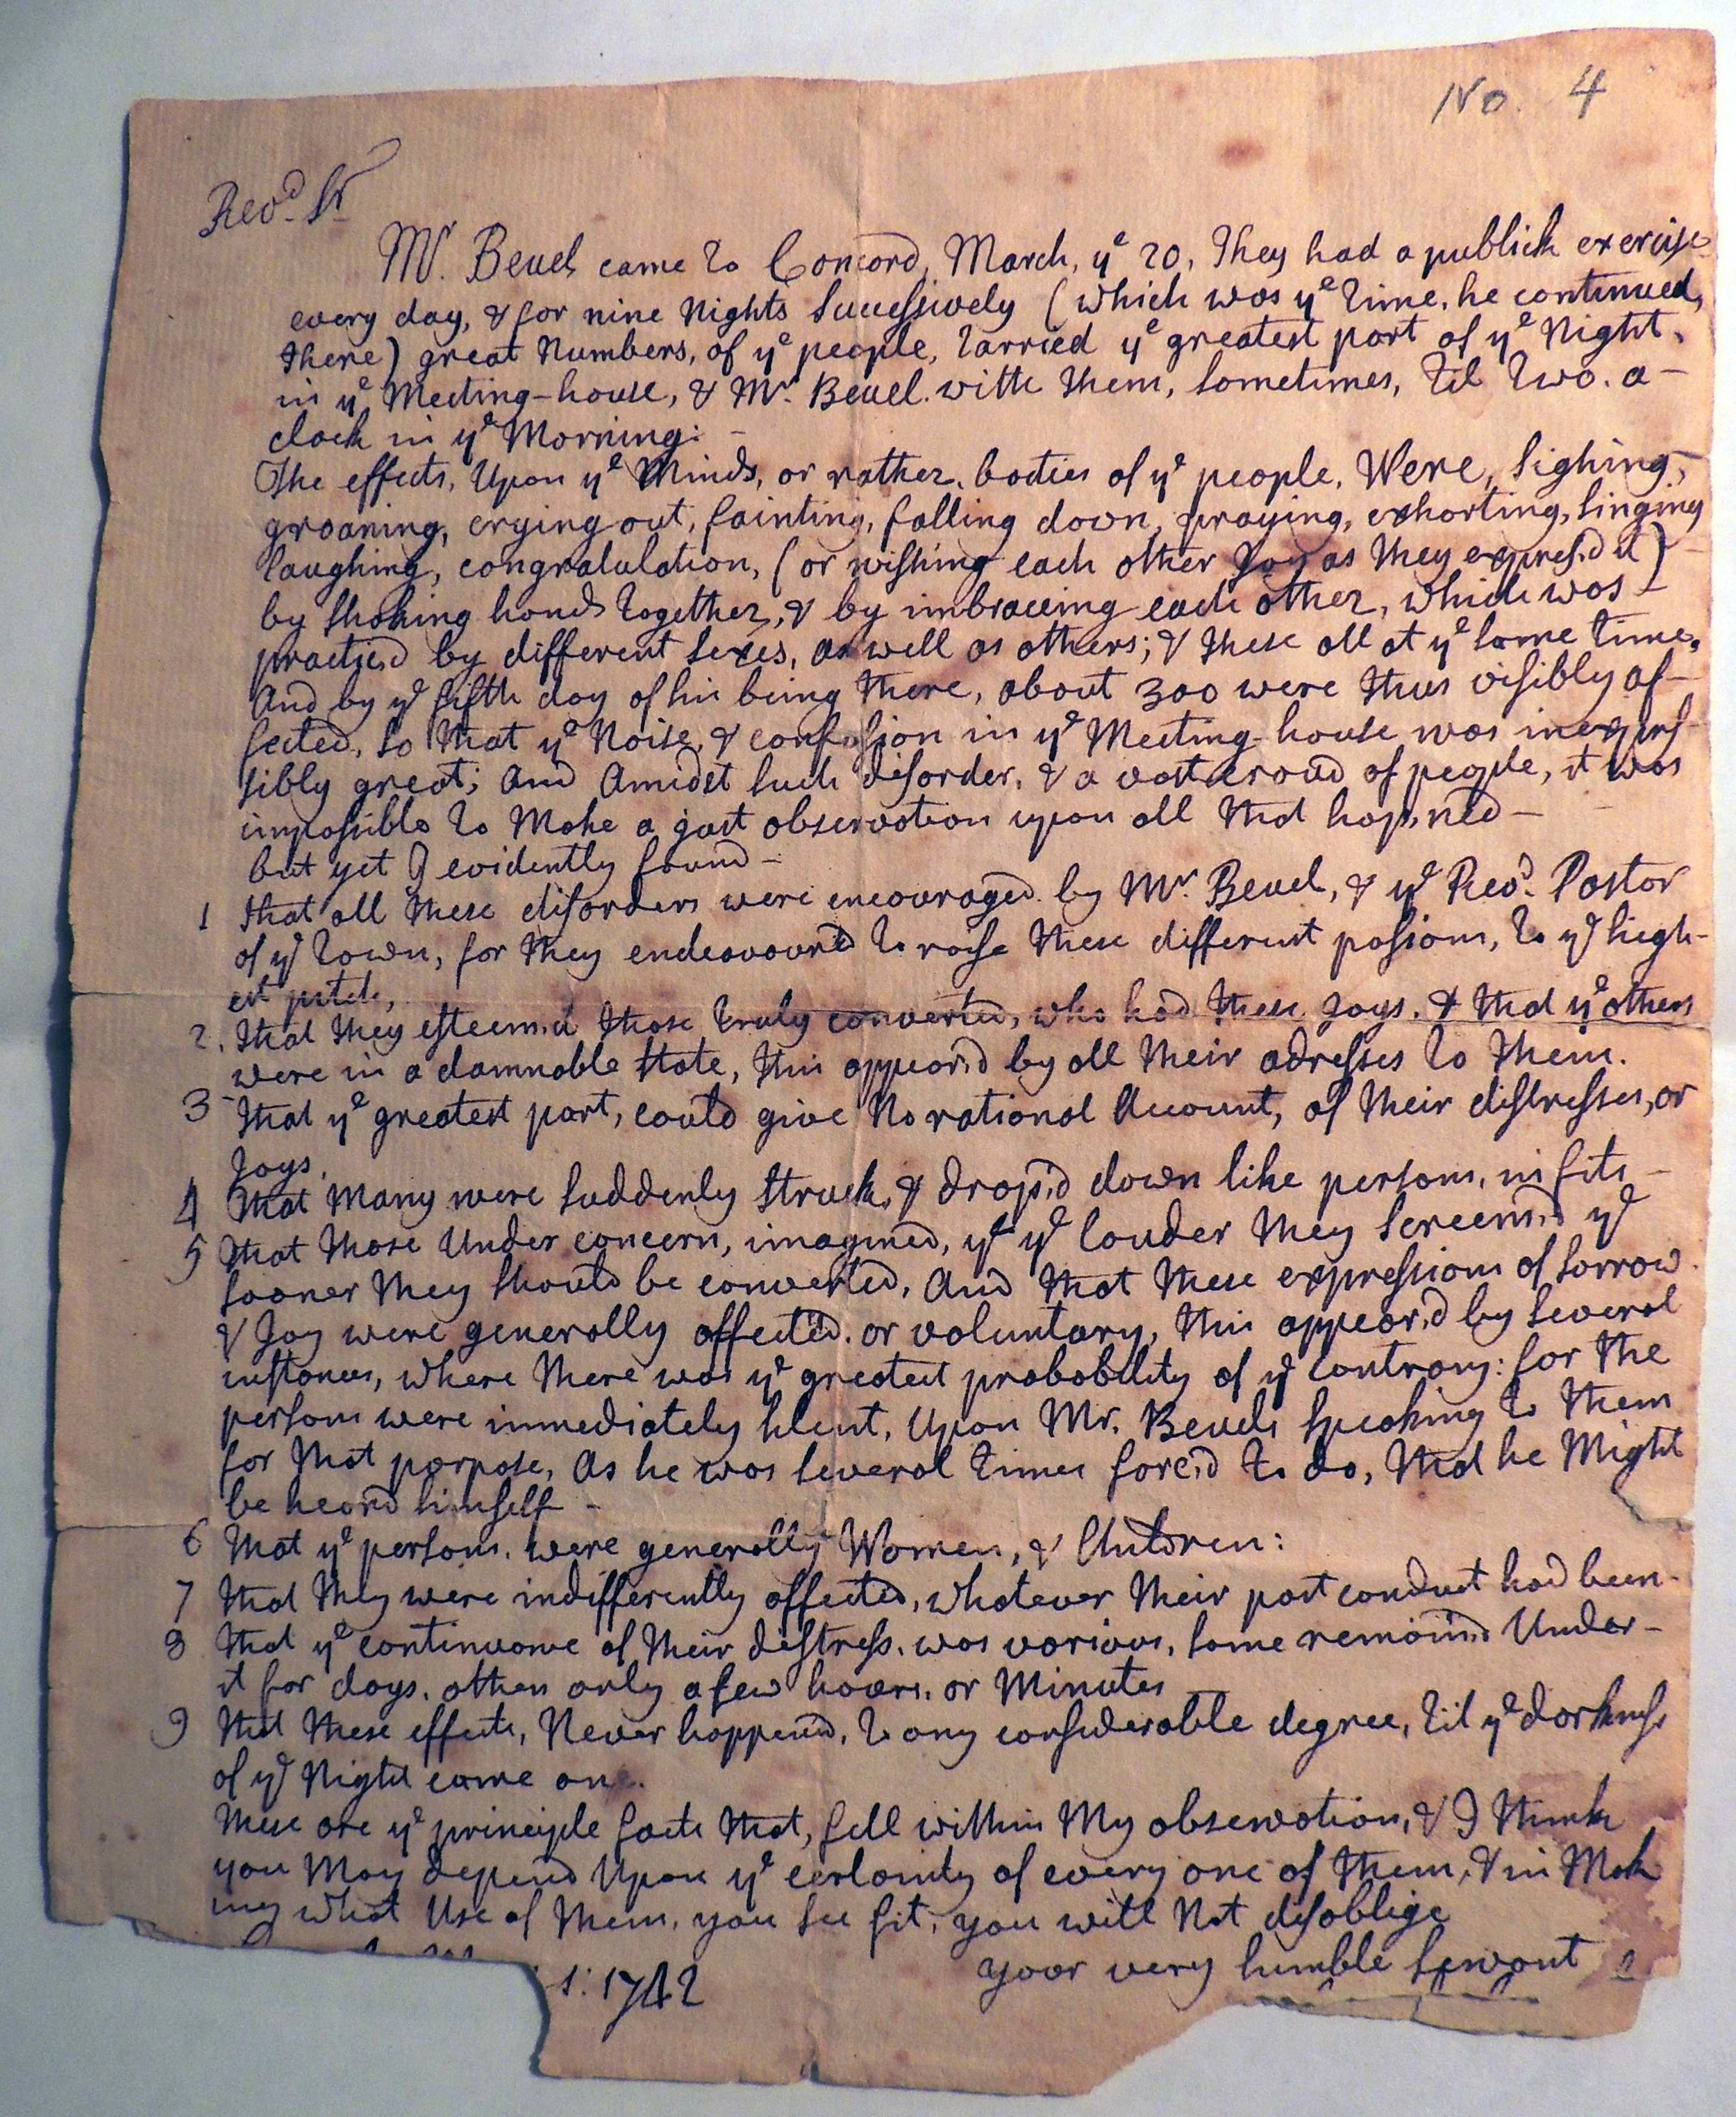 No. 4
Revd. Sr
Mr. Beuel came to Concord, March, ye 20, They had a publick exercise
every day, & for nine Nights Successively (which was ye time, he continued,
there) great Numbers, of ye people, tarried ye greatest part of ye Night,
in ye Meeting-house, & Mr. Beuel. with them, sometimes, til two. a-
clock in ye Morning: -
The effects, Upon ye Minds, or rather, bodies of ye people, Were, Sighing,
groaning, crying out, fainting, falling down, praying, exhorting, singing
laughing, congratulation, (or wishing each other Joy as they express'd it)
by shaking hands together, & by imbraceing each other, which was -
practis'd by different sexes, as well as others; & these all at ye same time,
And by ye fifth day of his being there, about 300 were thus visibly af-
fected, so that ye Noise, & confusion in ye Meeting-house was inexpres-
sibly great; And Amidst such disorder, & a vast croud of people, it was
impossible to Make a just observation upon all that hap'ned -
but yet I evidently found -
1 that all these disorders were encouraged. by Mr. Beuel, & ye Revd. Pastor
of ye town, for they endeavour'd to raise these different passions, to ye high-
est pitch,
2. that they esteem'd those truly converted, who had these Joys, & that ye others
were in a damnable state, this appear'd by all their adresses to them.
3 that ye greatest part, could give No rational Account, of their distresses, or
Joys,
4 that Many were suddenly struck, & drop'd down like persons, in fits -
5 that those Under concern, imagined, yt ye louder they screem'd ye
sooner they should be converted, And that these expressions of sorrow
& Joy were generally affected. or voluntary, this appear'd by several
instances, where there was ye greatest probability of ye contrary: for the
persons were immediately silent, Upon Mr. Beuels speaking to them
for that porpose, As he was several times forc'd to do, that he Might
be heard himself -
6 that ye persons, were generally Women, & Children:
7 that they were indifferently affected, whatever their past conduct had been -
8 that ye continuance of their distress, was various, some remain'd Under -
it for days, others only a few hours, or Minutes
9 that these effects, Never happened, to any considerable degree, til ye darkness
of ye Night came on.
these are ye principle facts that, fell within My observation, & I think
you May depend Upon ye certainty of every one of them, & in Mak
ing what Use of them, you see fit, you will Not disoblige
your very humble servant
1742